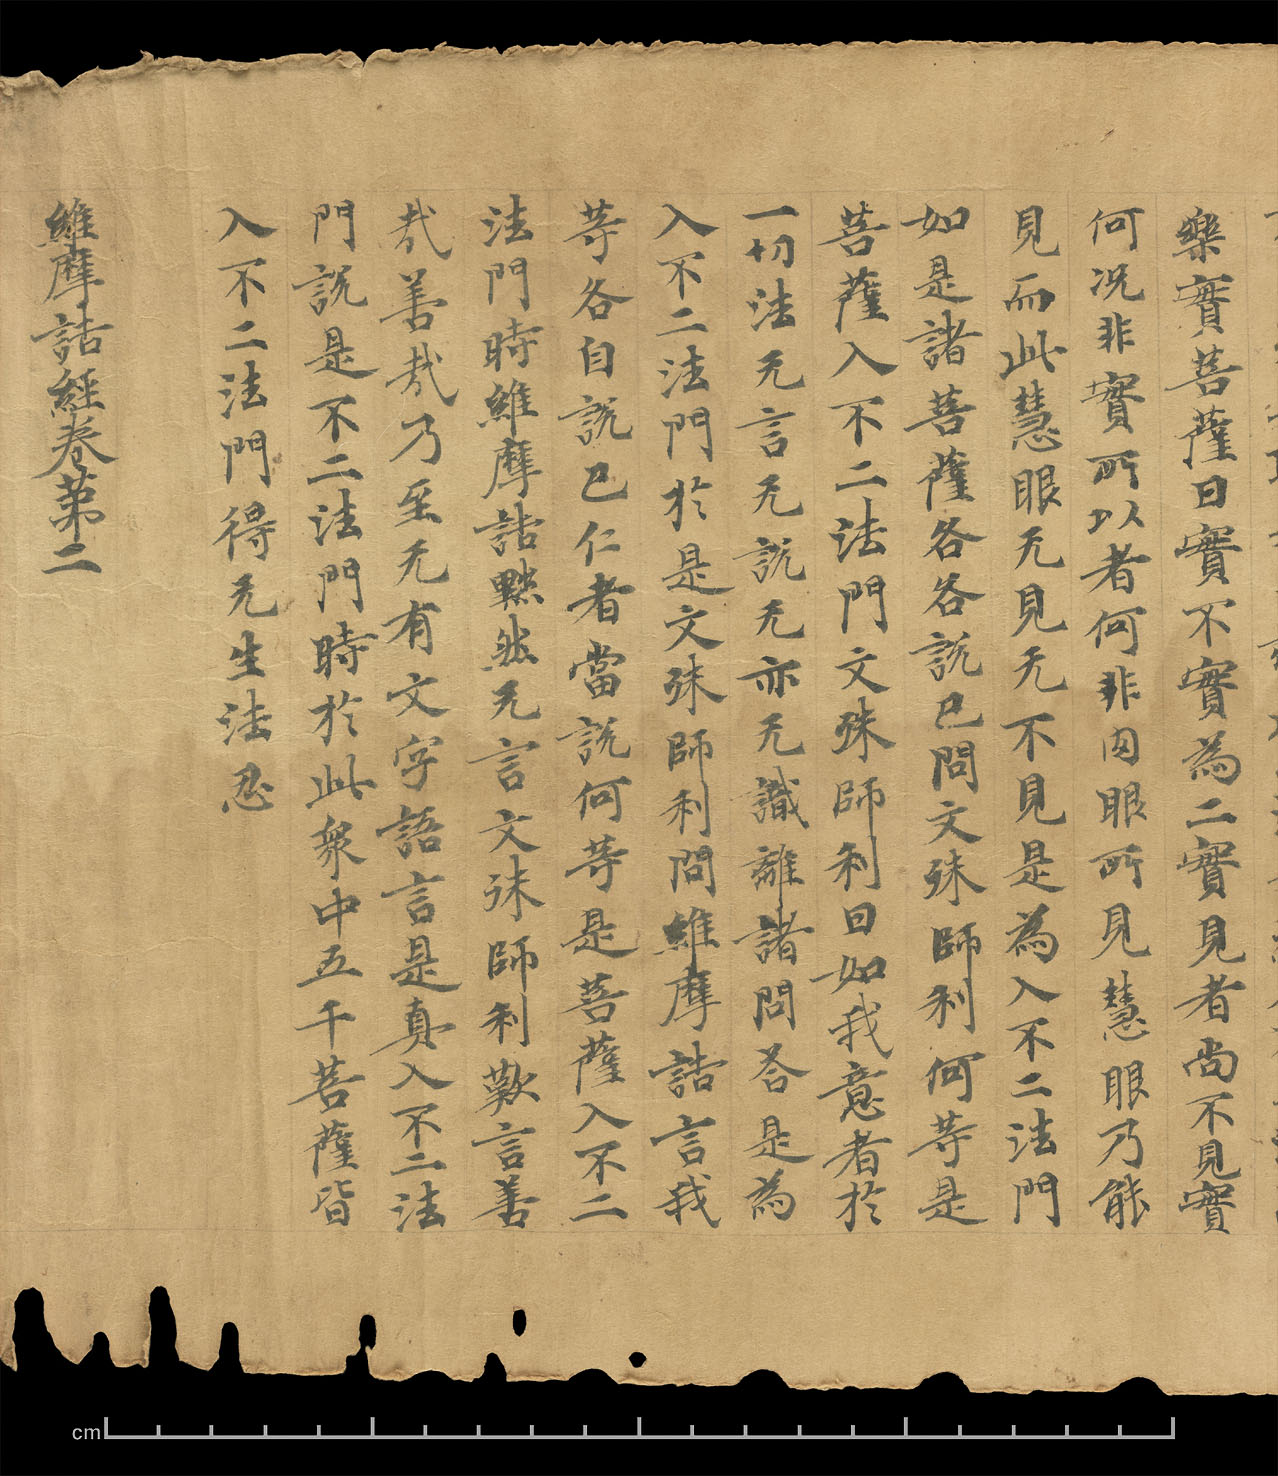 樂實菩薩曰實不實為二實見者尚不見實
何況非實所以者何非肉眼所見慧眼乃能
見而此慧眼无見无不見是為入不二法門
如是諸菩薩各各說已問文殊師利何等是
菩薩入不二法門文殊師利曰如我意者於
一切法无言无說无亦无識離諸問荅是為
入不二法門於是文殊師利問維摩詰言我
等各自說已仁者當說何等是菩薩入不二
法門時維摩詰默然无言文殊師利歎言善
㦲善㦲乃至无有文字語言是真入不二法
門說是不二法門時於此衆中五千菩薩皆
入不二法門得无生法忍
維摩詰經卷第二